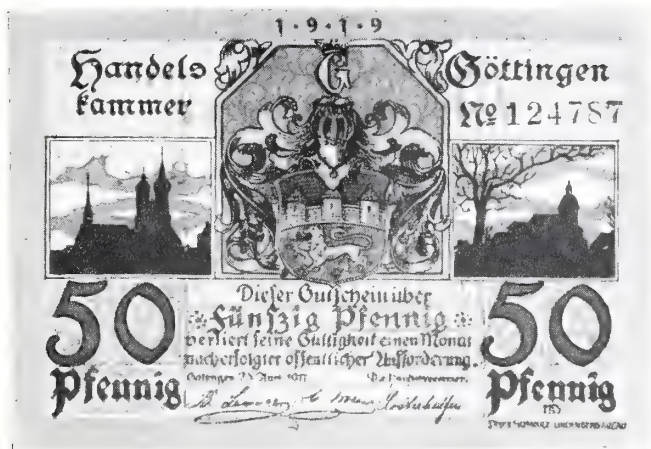 1·9·1·9
Handels
kammer
G
Göttingen
№ 124787
Dieser Gutschein über
Fünfzig Pfennig
verliert seine Gültigkeit einen Monat
nach erfolgter öffentlicher Aufforderung.
Göttingen
Die Handelskammer.
50
Pfennig
50
Pfennig